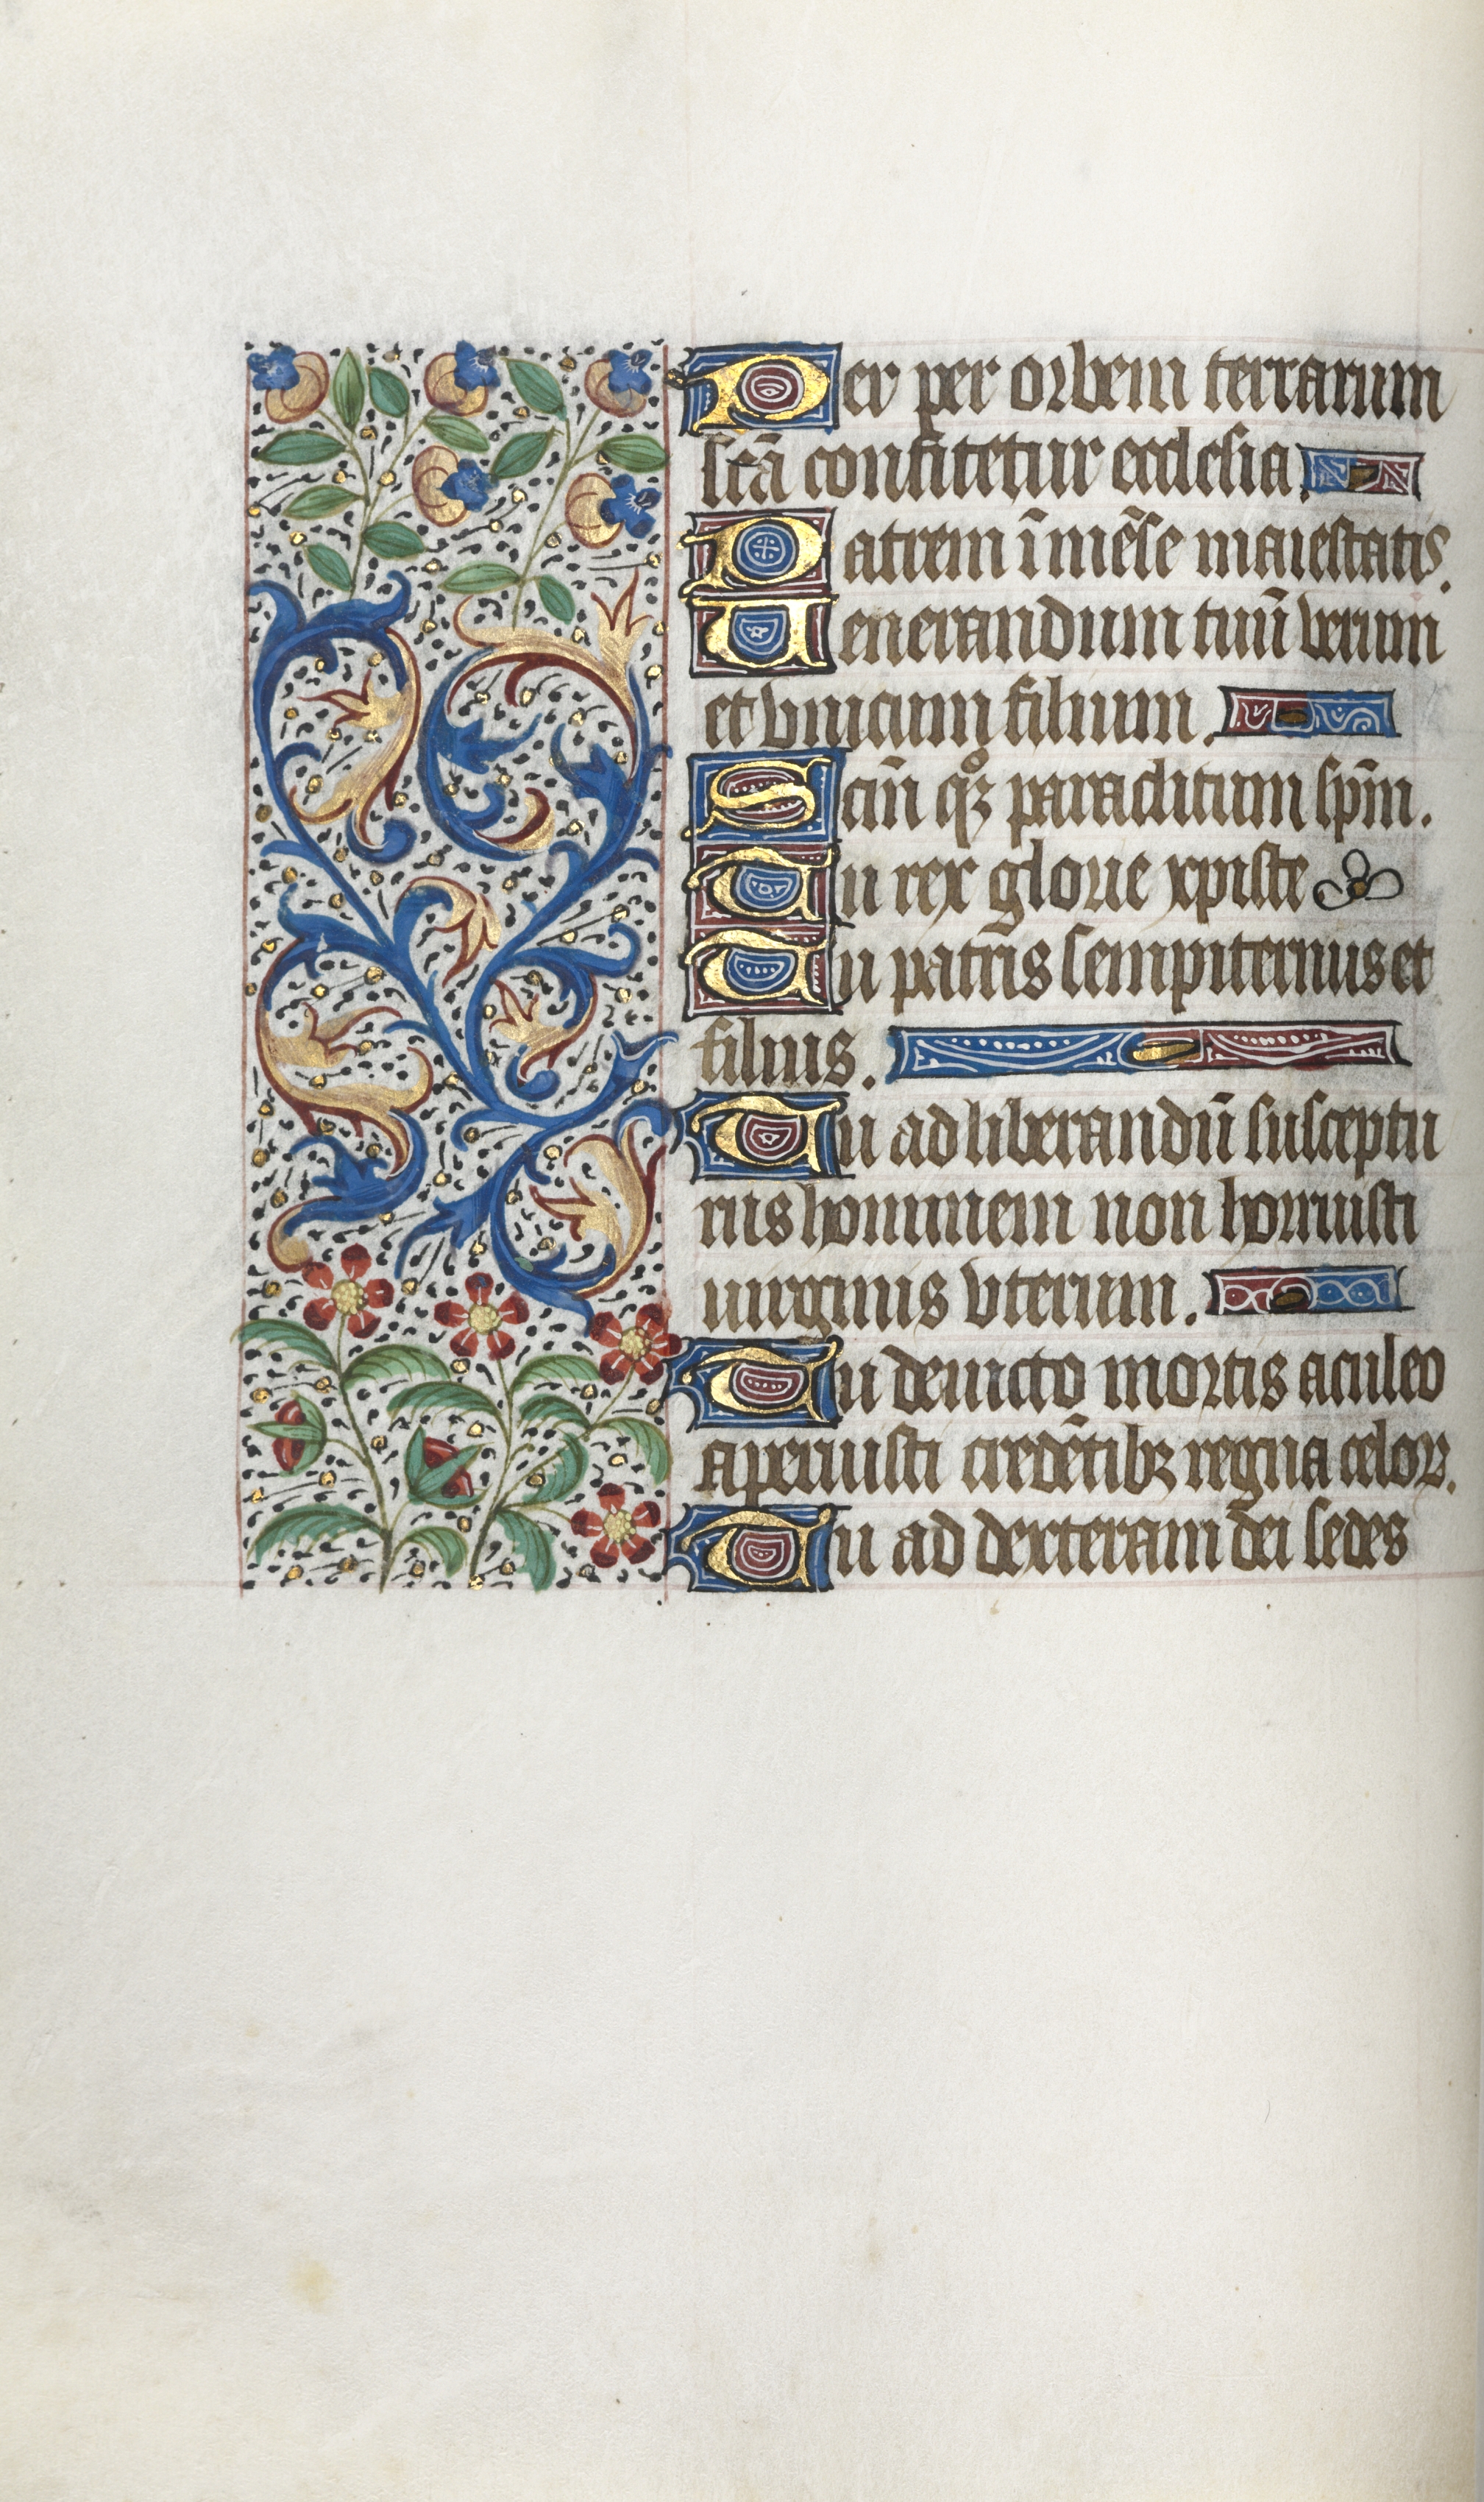 Per per orbem terrarum
sctā confitetur ecclesia.
Patrem īmēse maiestatis.
Uenerandum tuū verum
et vnicum filium.
Scm̄ qꝫ paraclitum sp̄m.
Tu rex glorie xpiste
Tu patris sempiternus et
filius.
Tu ad liberandū susceptu
rus hominem non horruisti
uirginis vterum.
Tu deuicto mortis aculeo
aperuisti credētibꝫ regna celoꝝ.
Tu ad dexteram dei sedes